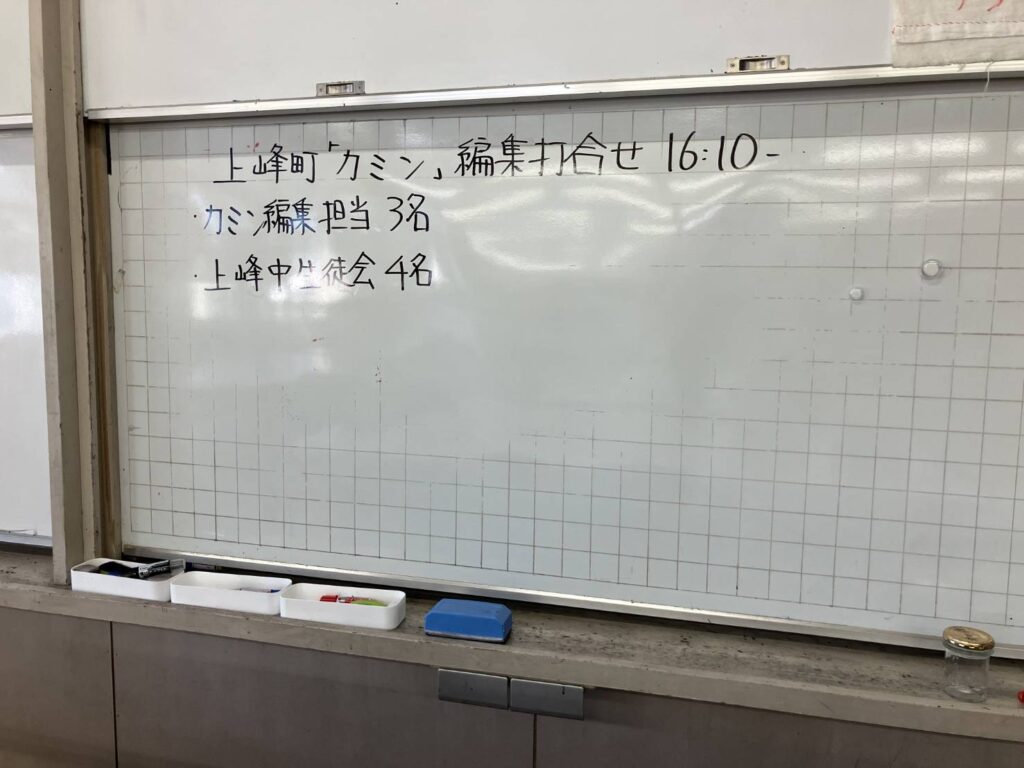 上峰町「カミン」編集打合せ 16:10-
・カミン編集担当 3名
・上峰中生徒会 4名